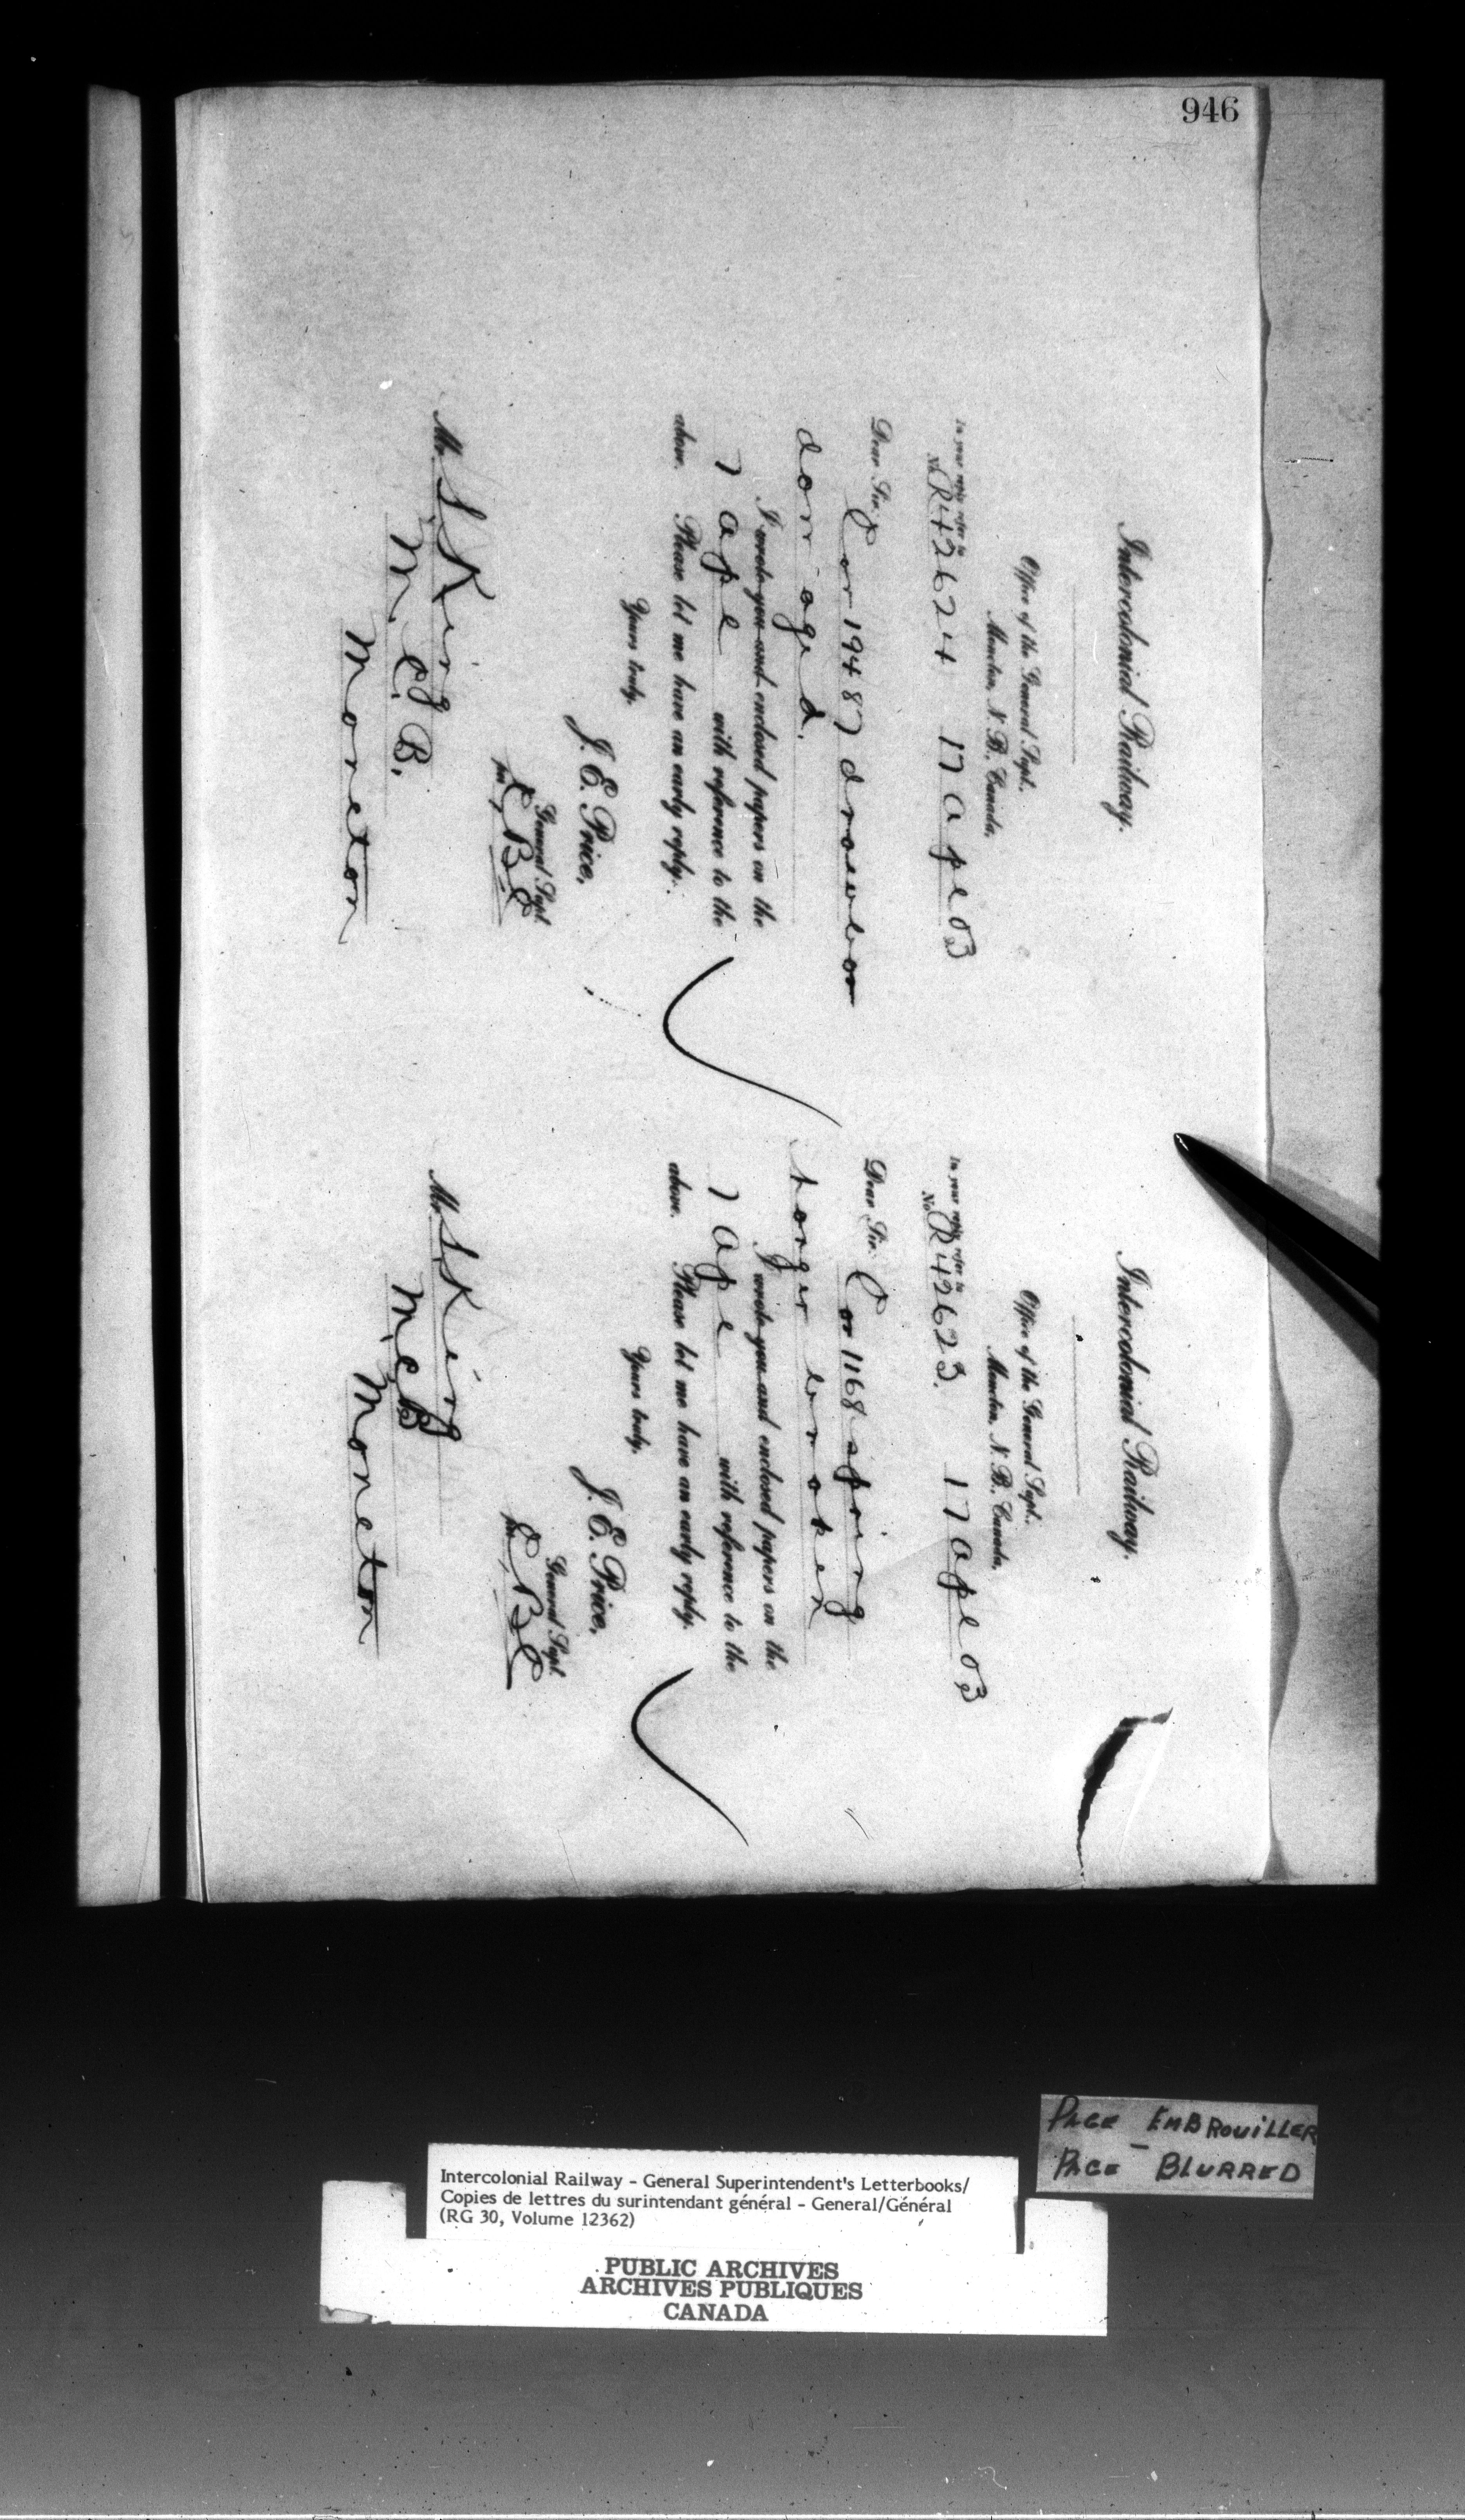 946
Intercolonial Railway.
Office of the General Supt.,
Moncton, N. B., Canada,
In your reply refer to
No. R42624 17 Apl 03
Dear Sir:
Car 19487 drawbar
damaged.
I wrote you and enclosed papers on the
7 Apl with reference to the
above. Please let me have an early reply.
Yours truly,
J. E. Price,
General Supt.
per
Mr. S. King
M. C. B.
Moncton
Intercolonial Railway.
Office of the General Supt.,
Moncton, N. B., Canada,
In your reply refer to
No. R42623. 17 Apl 03
Dear Sir:
Car 1168 spring
hanger broken
I wrote you and enclosed papers on the
7 Apl with reference to the
above. Please let me have an early reply.
Yours truly,
J. E. Price,
General Supt.
per
Mr. S. King
M. C. B.
Moncton
PAGE EMBROUILLER
PAGE BLURRED
Intercolonial Railway - General Superintendent's Letterbooks/
Copies de lettres du surintendant général - General/Général
(RG 30, Volume 12362)
PUBLIC ARCHIVES
ARCHIVES PUBLIQUES
CANADA